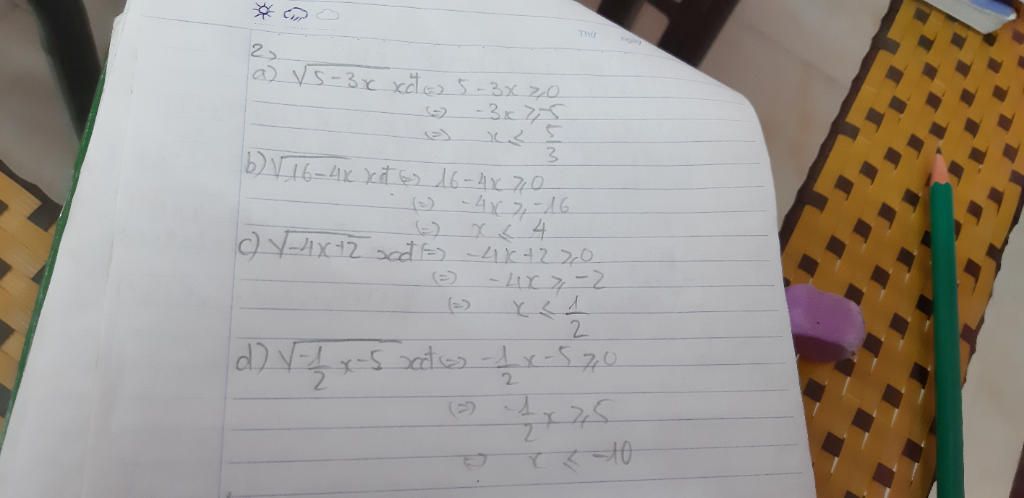 2,
a) √5-3x xđ ⇔ 5-3x ⩾ 0
⇔ -3x ⩾ -5
⇔ x ⩽ 5/3
b) √16-4x xđ ⇔ 16-4x ⩾ 0
⇔ -4x ⩾ -16
⇔ x ⩽ 4
c) √-4x+2 xđ ⇔ -4x+2 ⩾ 0
⇔ -4x ⩾ -2
⇔ x ⩽ 1/2
d) √-1/2x-5 xđ ⇔ -1/2x-5 ⩾ 0
⇔ -1/2x ⩾ 5
⇔ x ⩽ -10